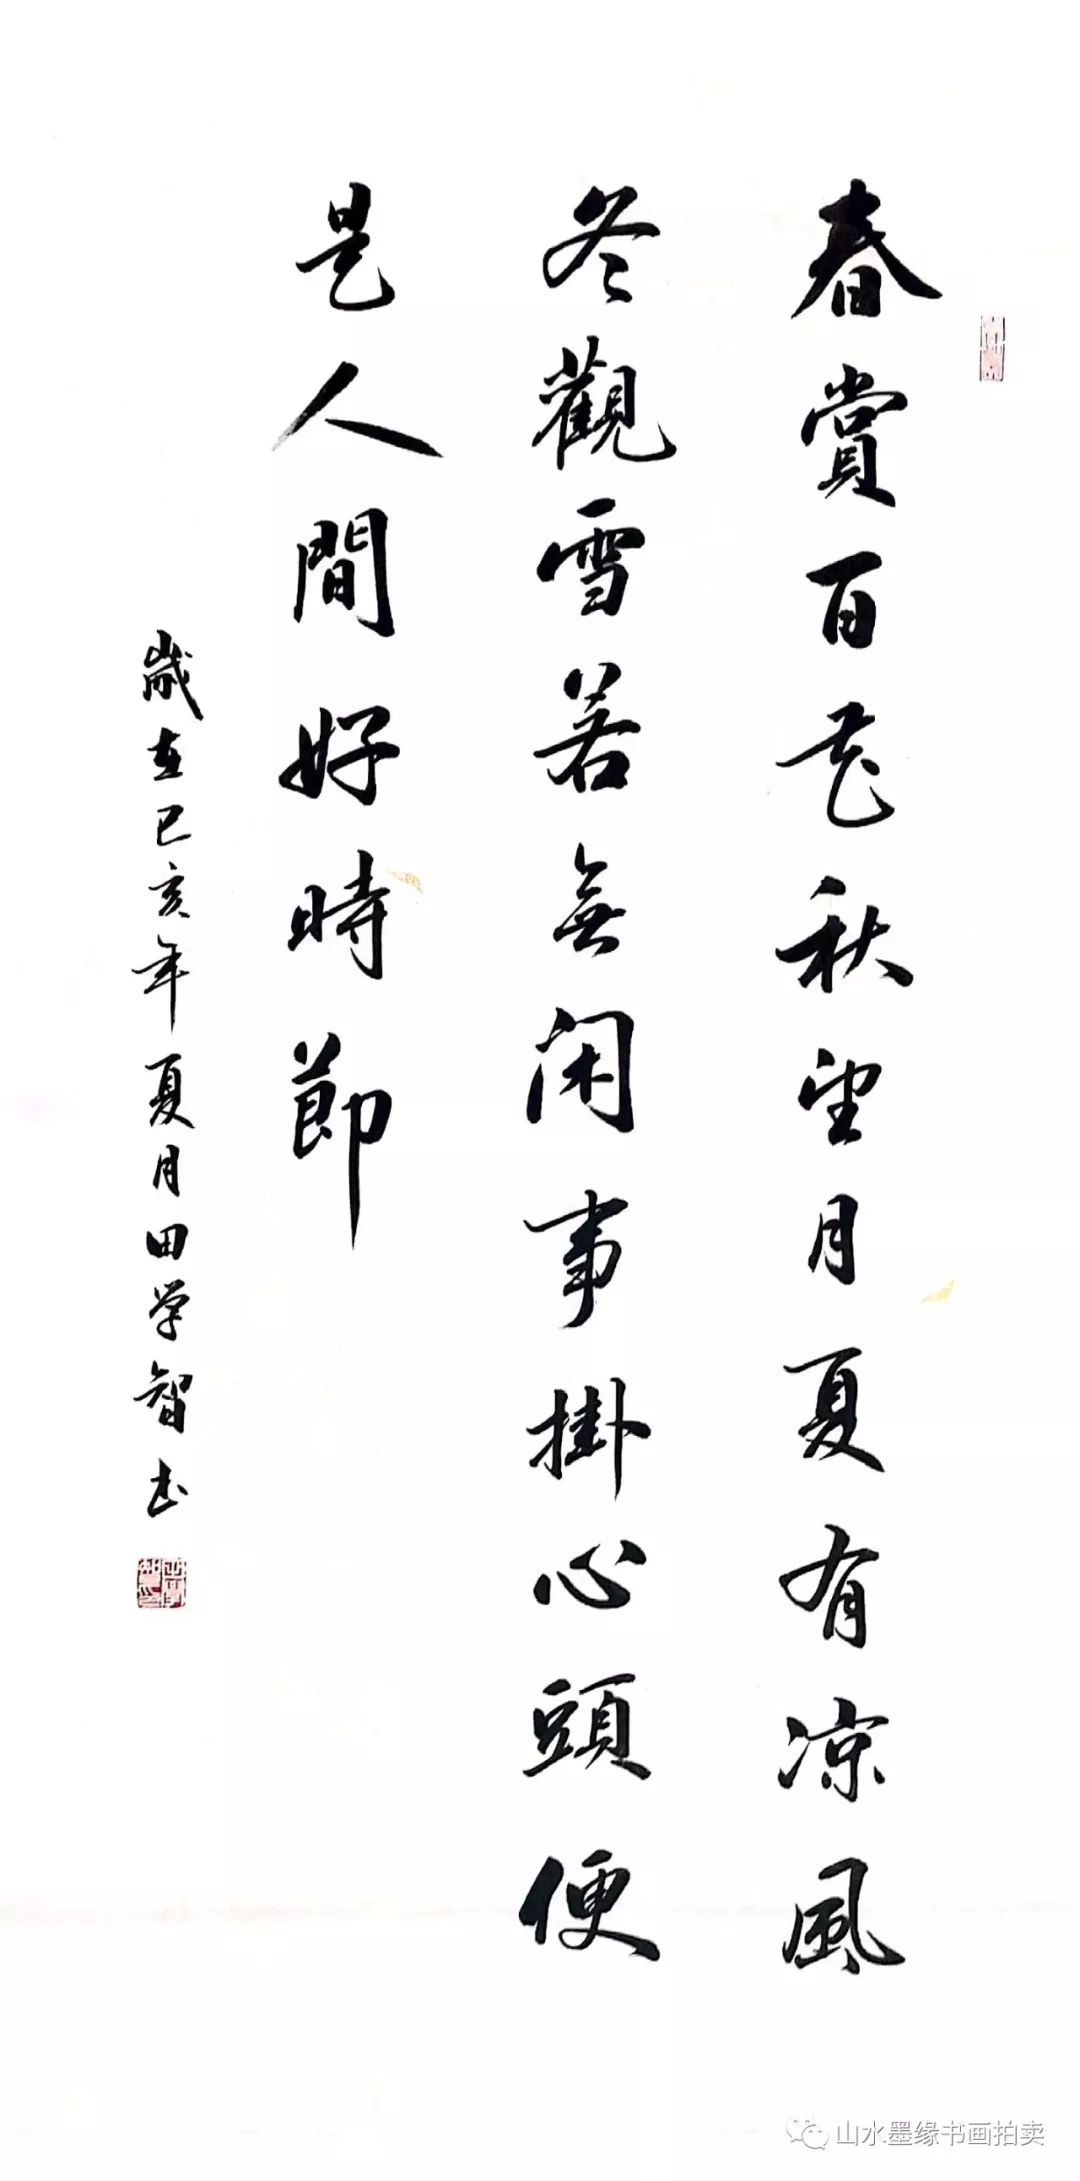 春賞百花秋望月夏有凉風
冬觀雪若無闲事掛心頭便
是人間好時節
歲在己亥年夏月田学智书
山水墨缘书画拍卖